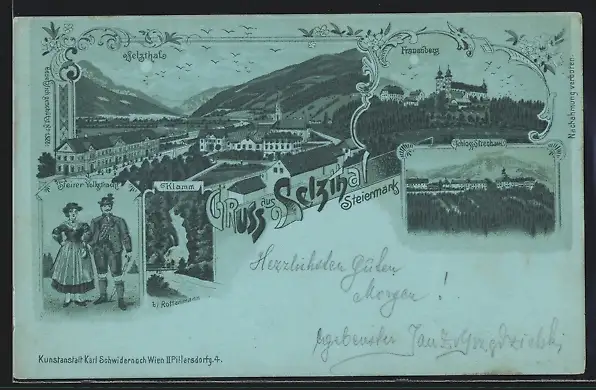 Selzthal
Frauenberg
Nachahmung verboten.
Schloss Strechau
Steirer Volkstracht
Klamm
b/ Rottenmann
Gruss aus Selzthal
Steiermark
Herzlichsten Guten
Morgen !
Kunstanstalt Karl Schwidernoch Wien II Pillersdorfg. 4.